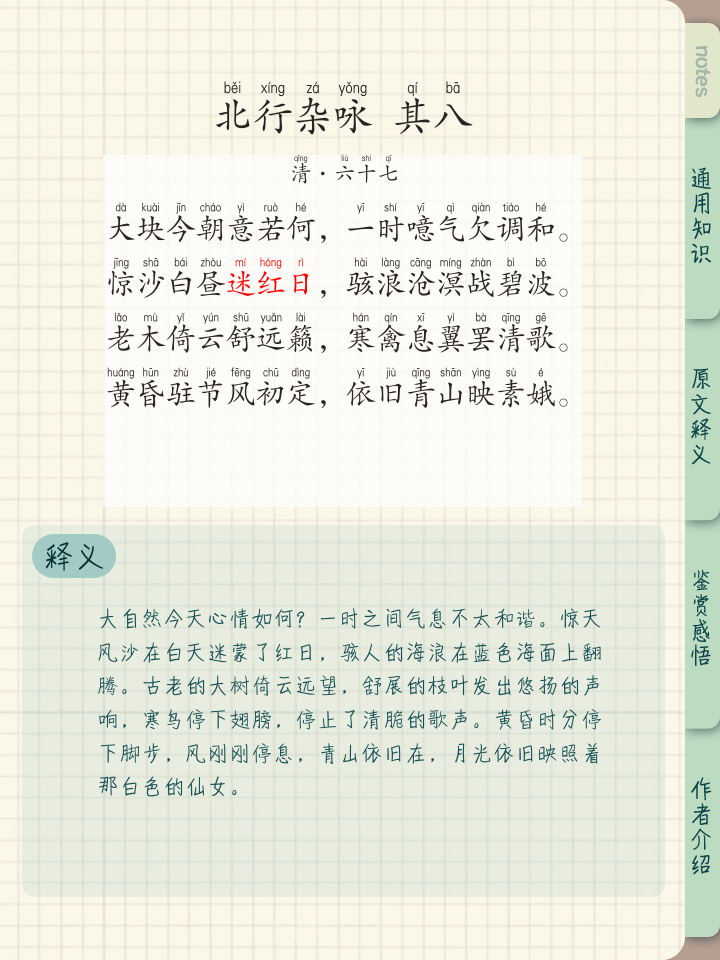 běi xíng zá yǒng qí bā
北行杂咏 其八
qīng liù shí qī
清·六十七
dà kuài jīn cháo yì ruò hé yī shí yī qì qiàn tiáo hé
大块今朝意若何，一时噫气欠调和。
jīng shā bái zhòu mí hóng rì hài làng cāng míng zhàn bì bō
惊沙白昼迷红日，骇浪沧溟战碧波。
lǎo mù yǐ yún shū yuǎn lài hán qín xī yì bà qīng gē
老木倚云舒远籁，寒禽息翼罢清歌。
huáng hūn zhù jié fēng chū dìng yī jiù qīng shān yìng sù é
黄昏驻节风初定，依旧青山映素娥。
释义
大自然今天心情如何？一时之间气息不太和谐。惊天
风沙在白天迷蒙了红日，骇人的海浪在蓝色海面上翻
腾。古老的大树倚云远望，舒展的枝叶发出悠扬的声
响，寒鸟停下翅膀，停止了清脆的歌声。黄昏时分停
下脚步，风刚刚停息，青山依旧在，月光依旧映照着
那白色的仙女。
notes
通用知识
原文释义
鉴赏感悟
作者介绍